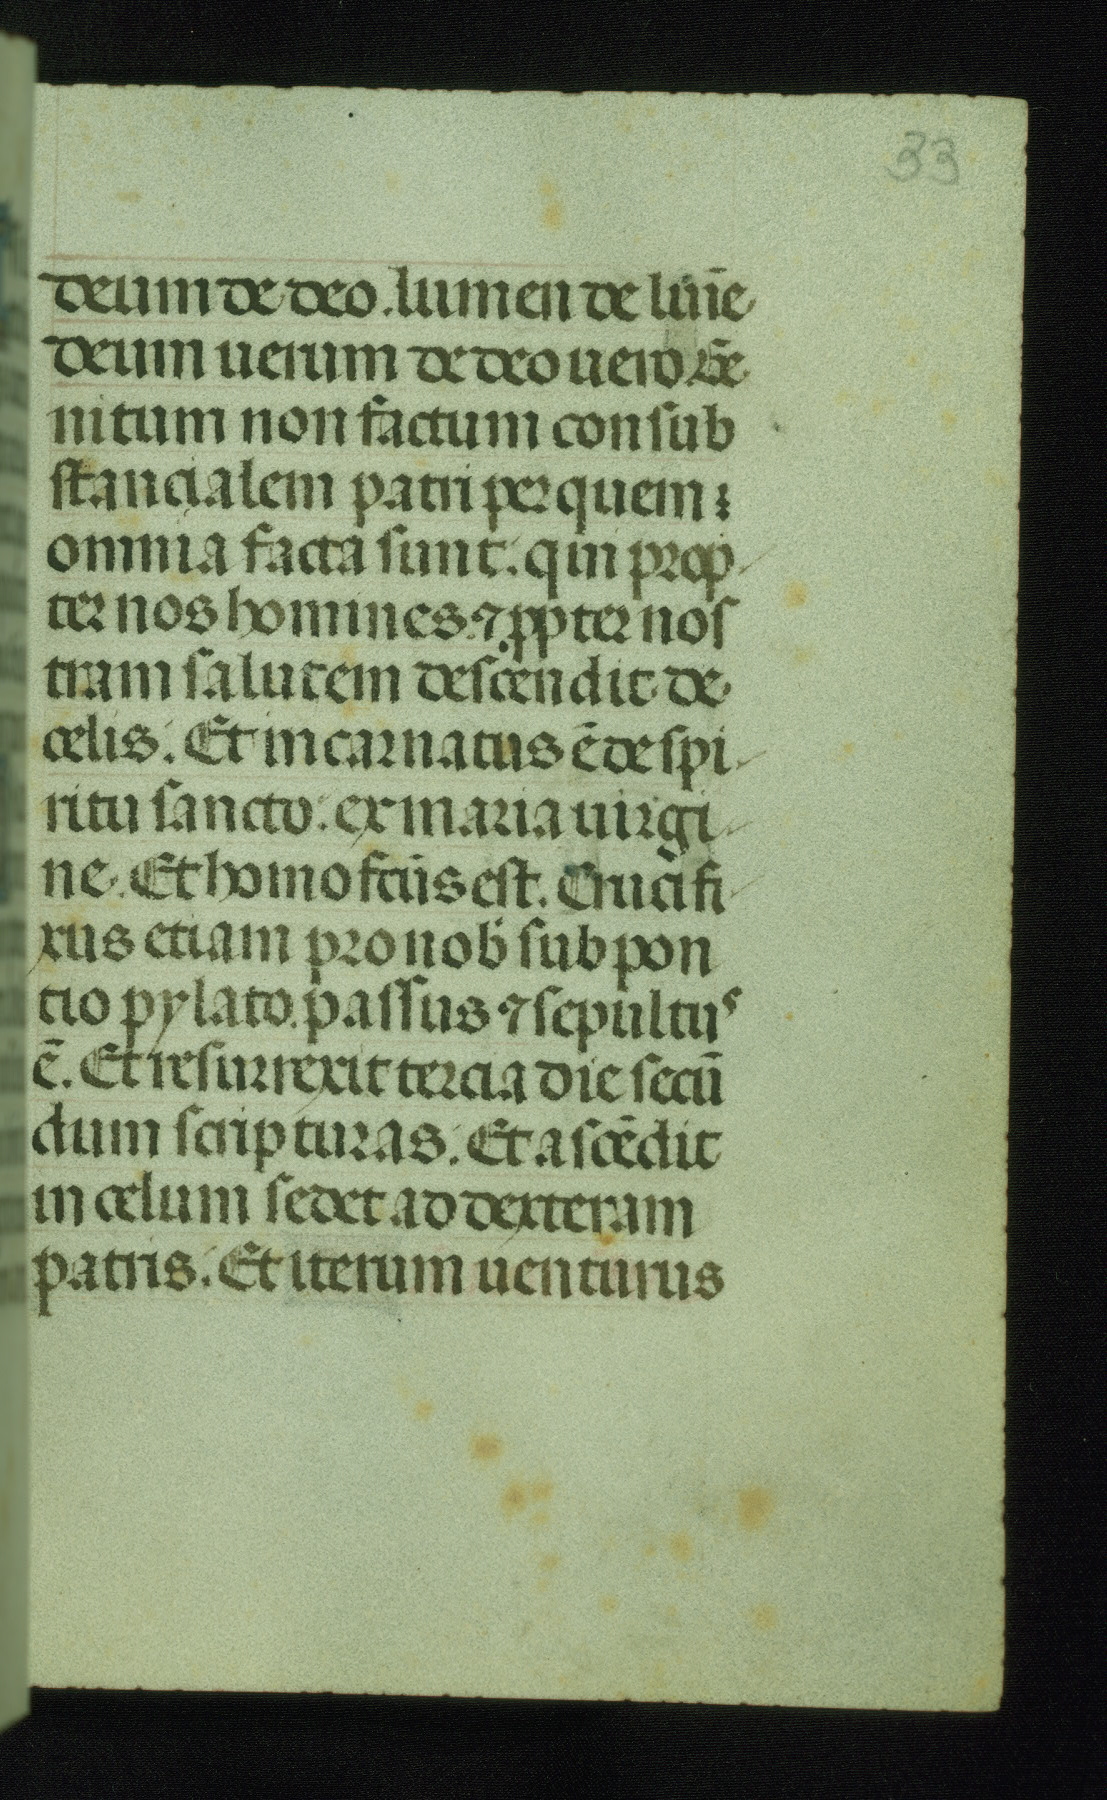 33
deum de deo. lumen de lum̄e
deum uerum de deo uero. Ge
nitum non factum consub
stancialem patri per quem
omnia facta sunt. qui prop
ter nos homines. ⁊ ꝓpter nos
tram salutem descendit de
celis. Et incarnatus ē de spi
ritu sancto. ex maria uirgi
ne. Et homo fc̄us est. Crucifi
xus etiam pro nob̄ sub pon
tio pylato. passus ⁊ sepultuˢ
ē. Et resurrexit tercia die secū
dum scripturas. Et ascēdit
in celum sedet ad dexteram
patris. Et iterum uenturus